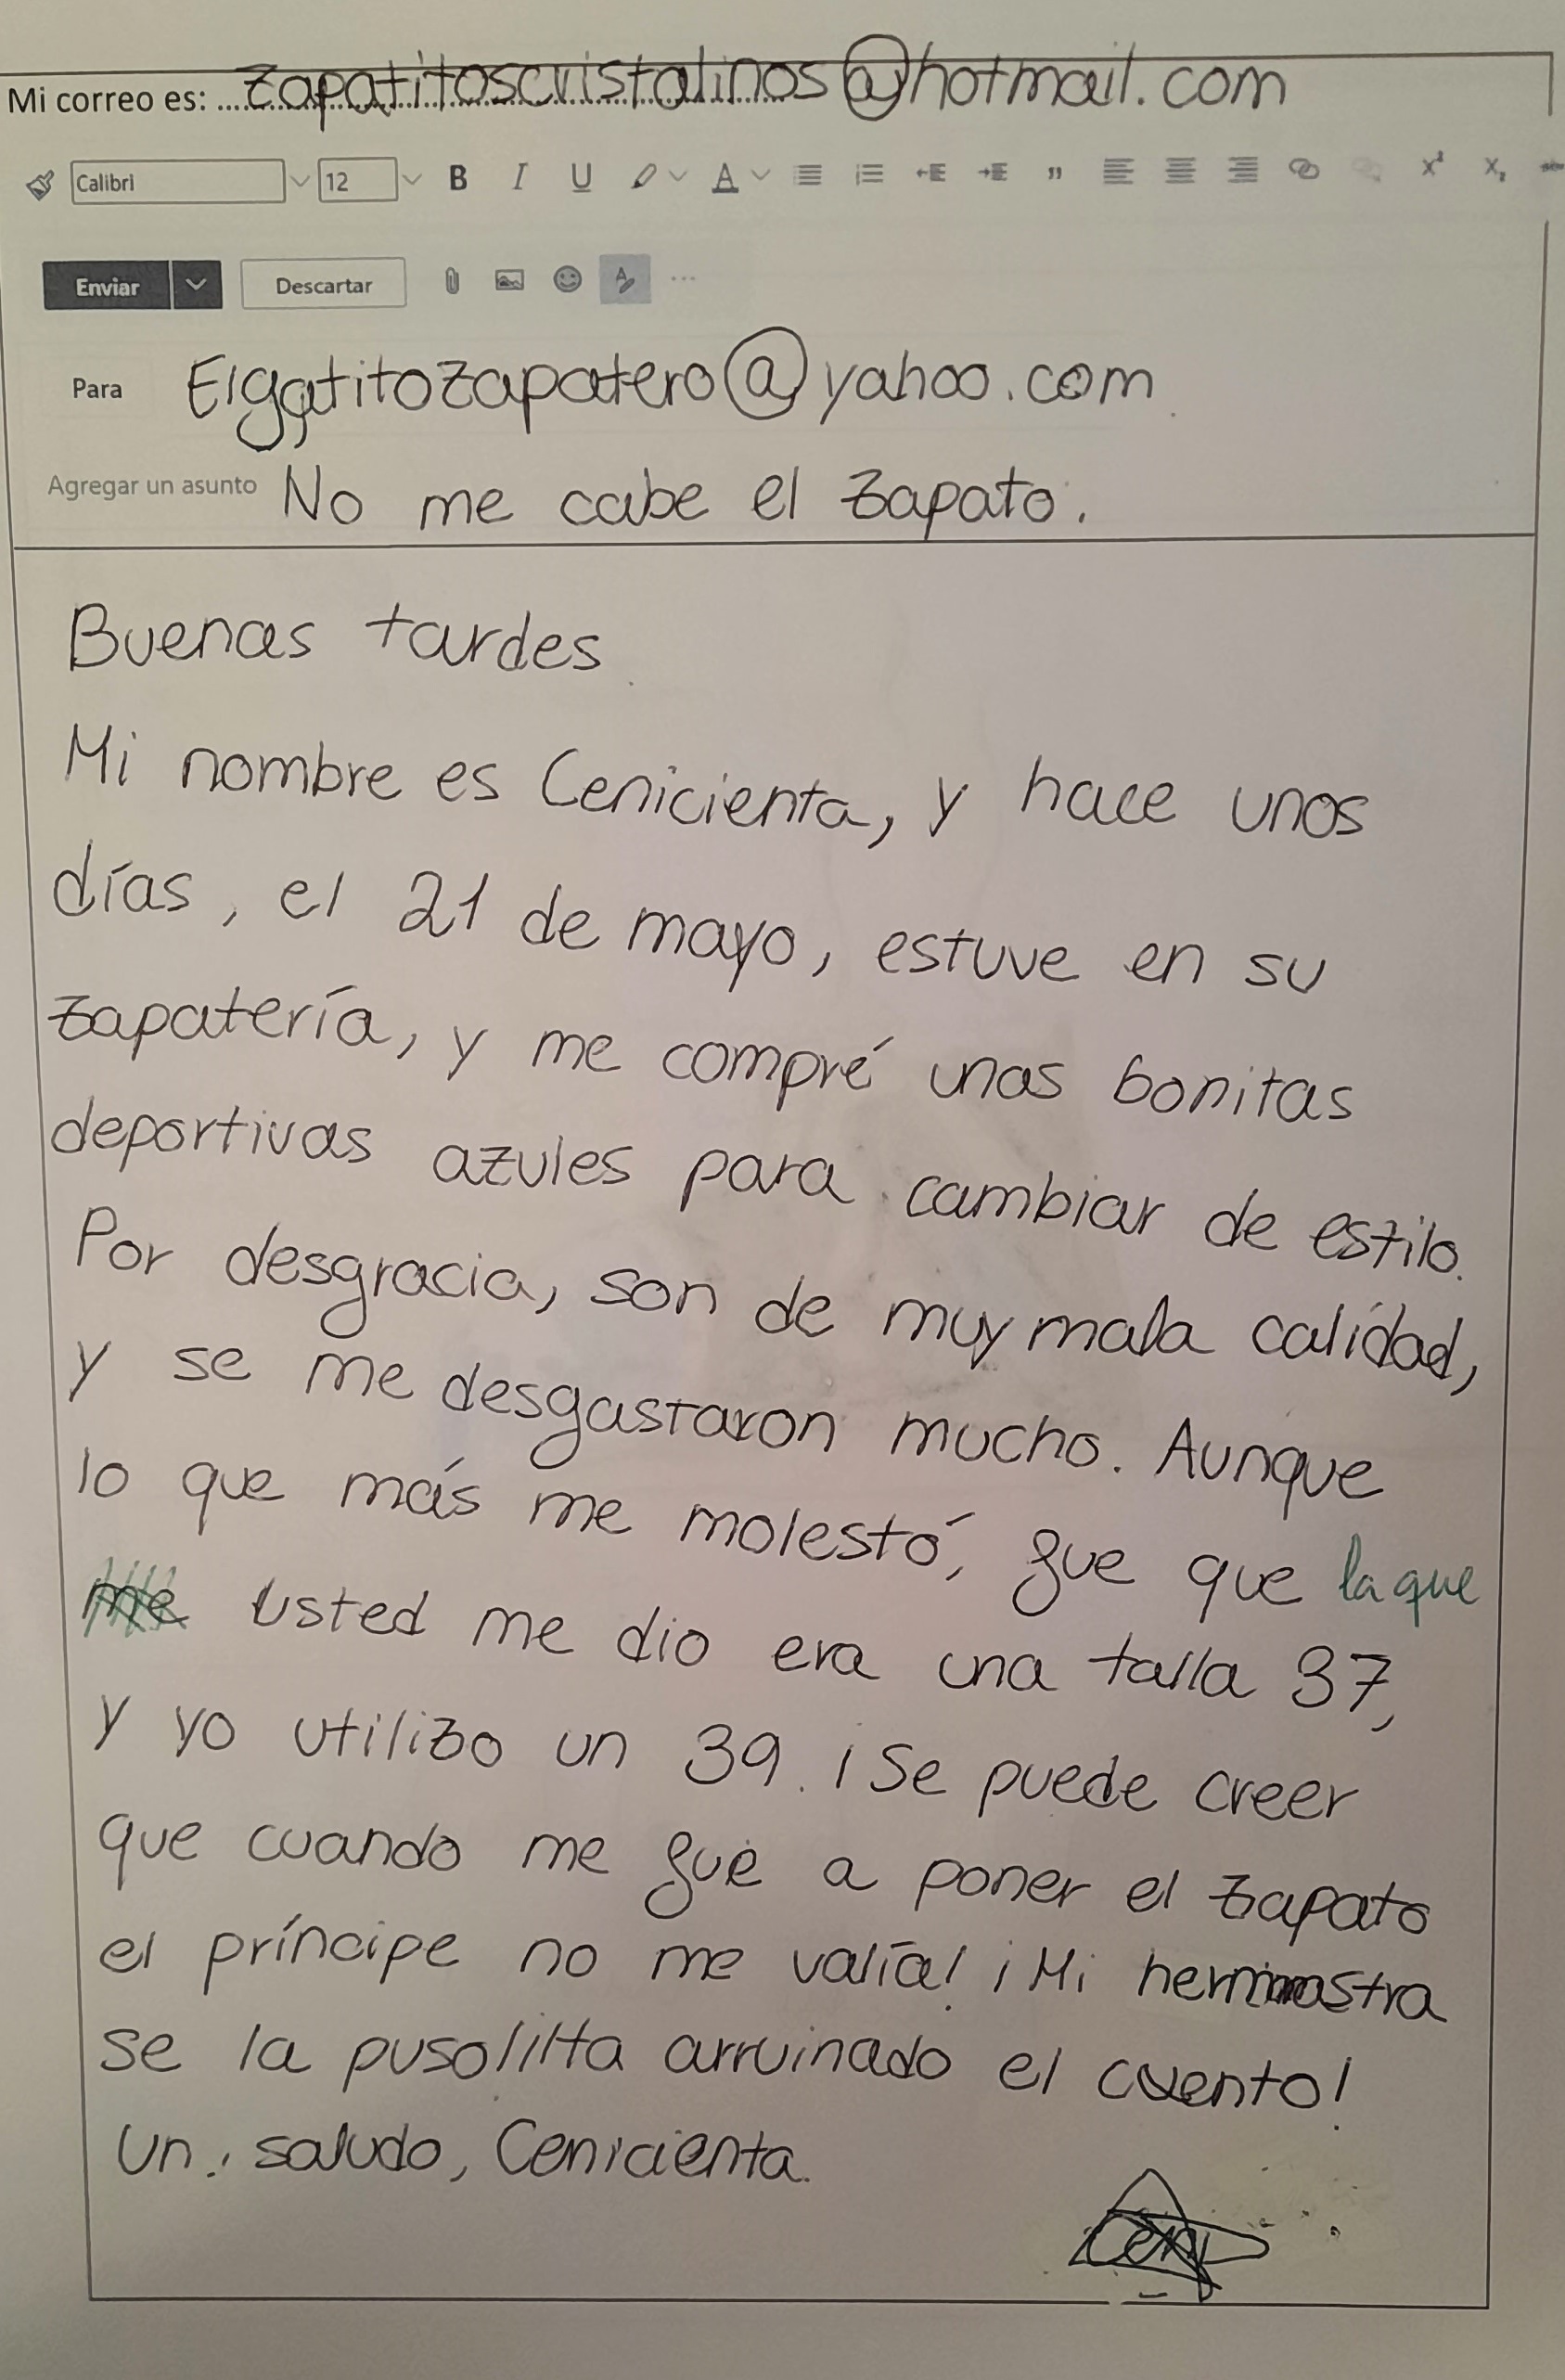 Mi correo es: zapatitoscristalinos@hotmail.com
Calibri 12 B I U A x² x₂
Enviar Descartar
Para Elgatitozapatero@yahoo.com
Agregar un asunto No me cabe el zapato.
Buenas tardes
Mi nombre es Cenicienta, y hace unos
días, el 21 de mayo, estuve en su
zapatería, y me compré unas bonitas
deportivas azules para cambiar de estilo.
Por desgracia, son de muy mala calidad,
y se me desgastaron mucho. Aunque
lo que más me molestó, fue que la que
usted me dio era una talla 37,
y yo utilizo un 39. ¡Se puede creer
que cuando me fue a poner el zapato
el príncipe no me valía! ¡Mi
se la puso arruinado el cuento!
Un saludo, Cenicienta.
Ceni